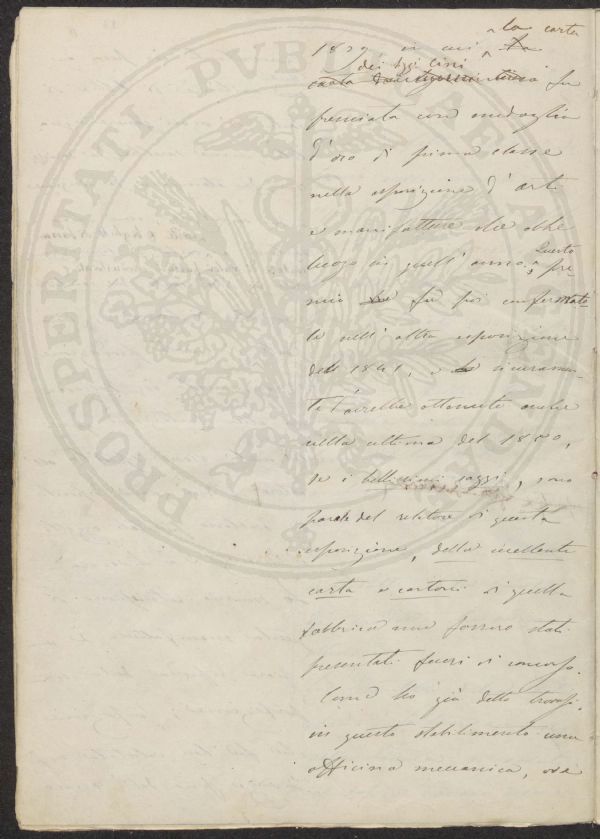 la carta
1839, in cui la
dei Sggi Cini
carta fu
premiata con medaglia
d'oro di prima classe
nella esposizione d'arti
e manifatture che ebbe
luogo in quell'anno, Questo pre
mio fu poi confermato
le nell'altra esposizione
del 1841, e sicuramen
te l'avrebbe ottenuto anche
nella ultima del 1850,
se i bellissimi saggi, sono
parole del relatore di questa
esposizione, della eccellente
carta e cartoni di quella
fabbrica non fossero stati
presentati fuori di concorso.
Come ho già detto trovasi
in questo stabilimento una
officina meccanica, ove
PROSPERITATI PUBLICAE